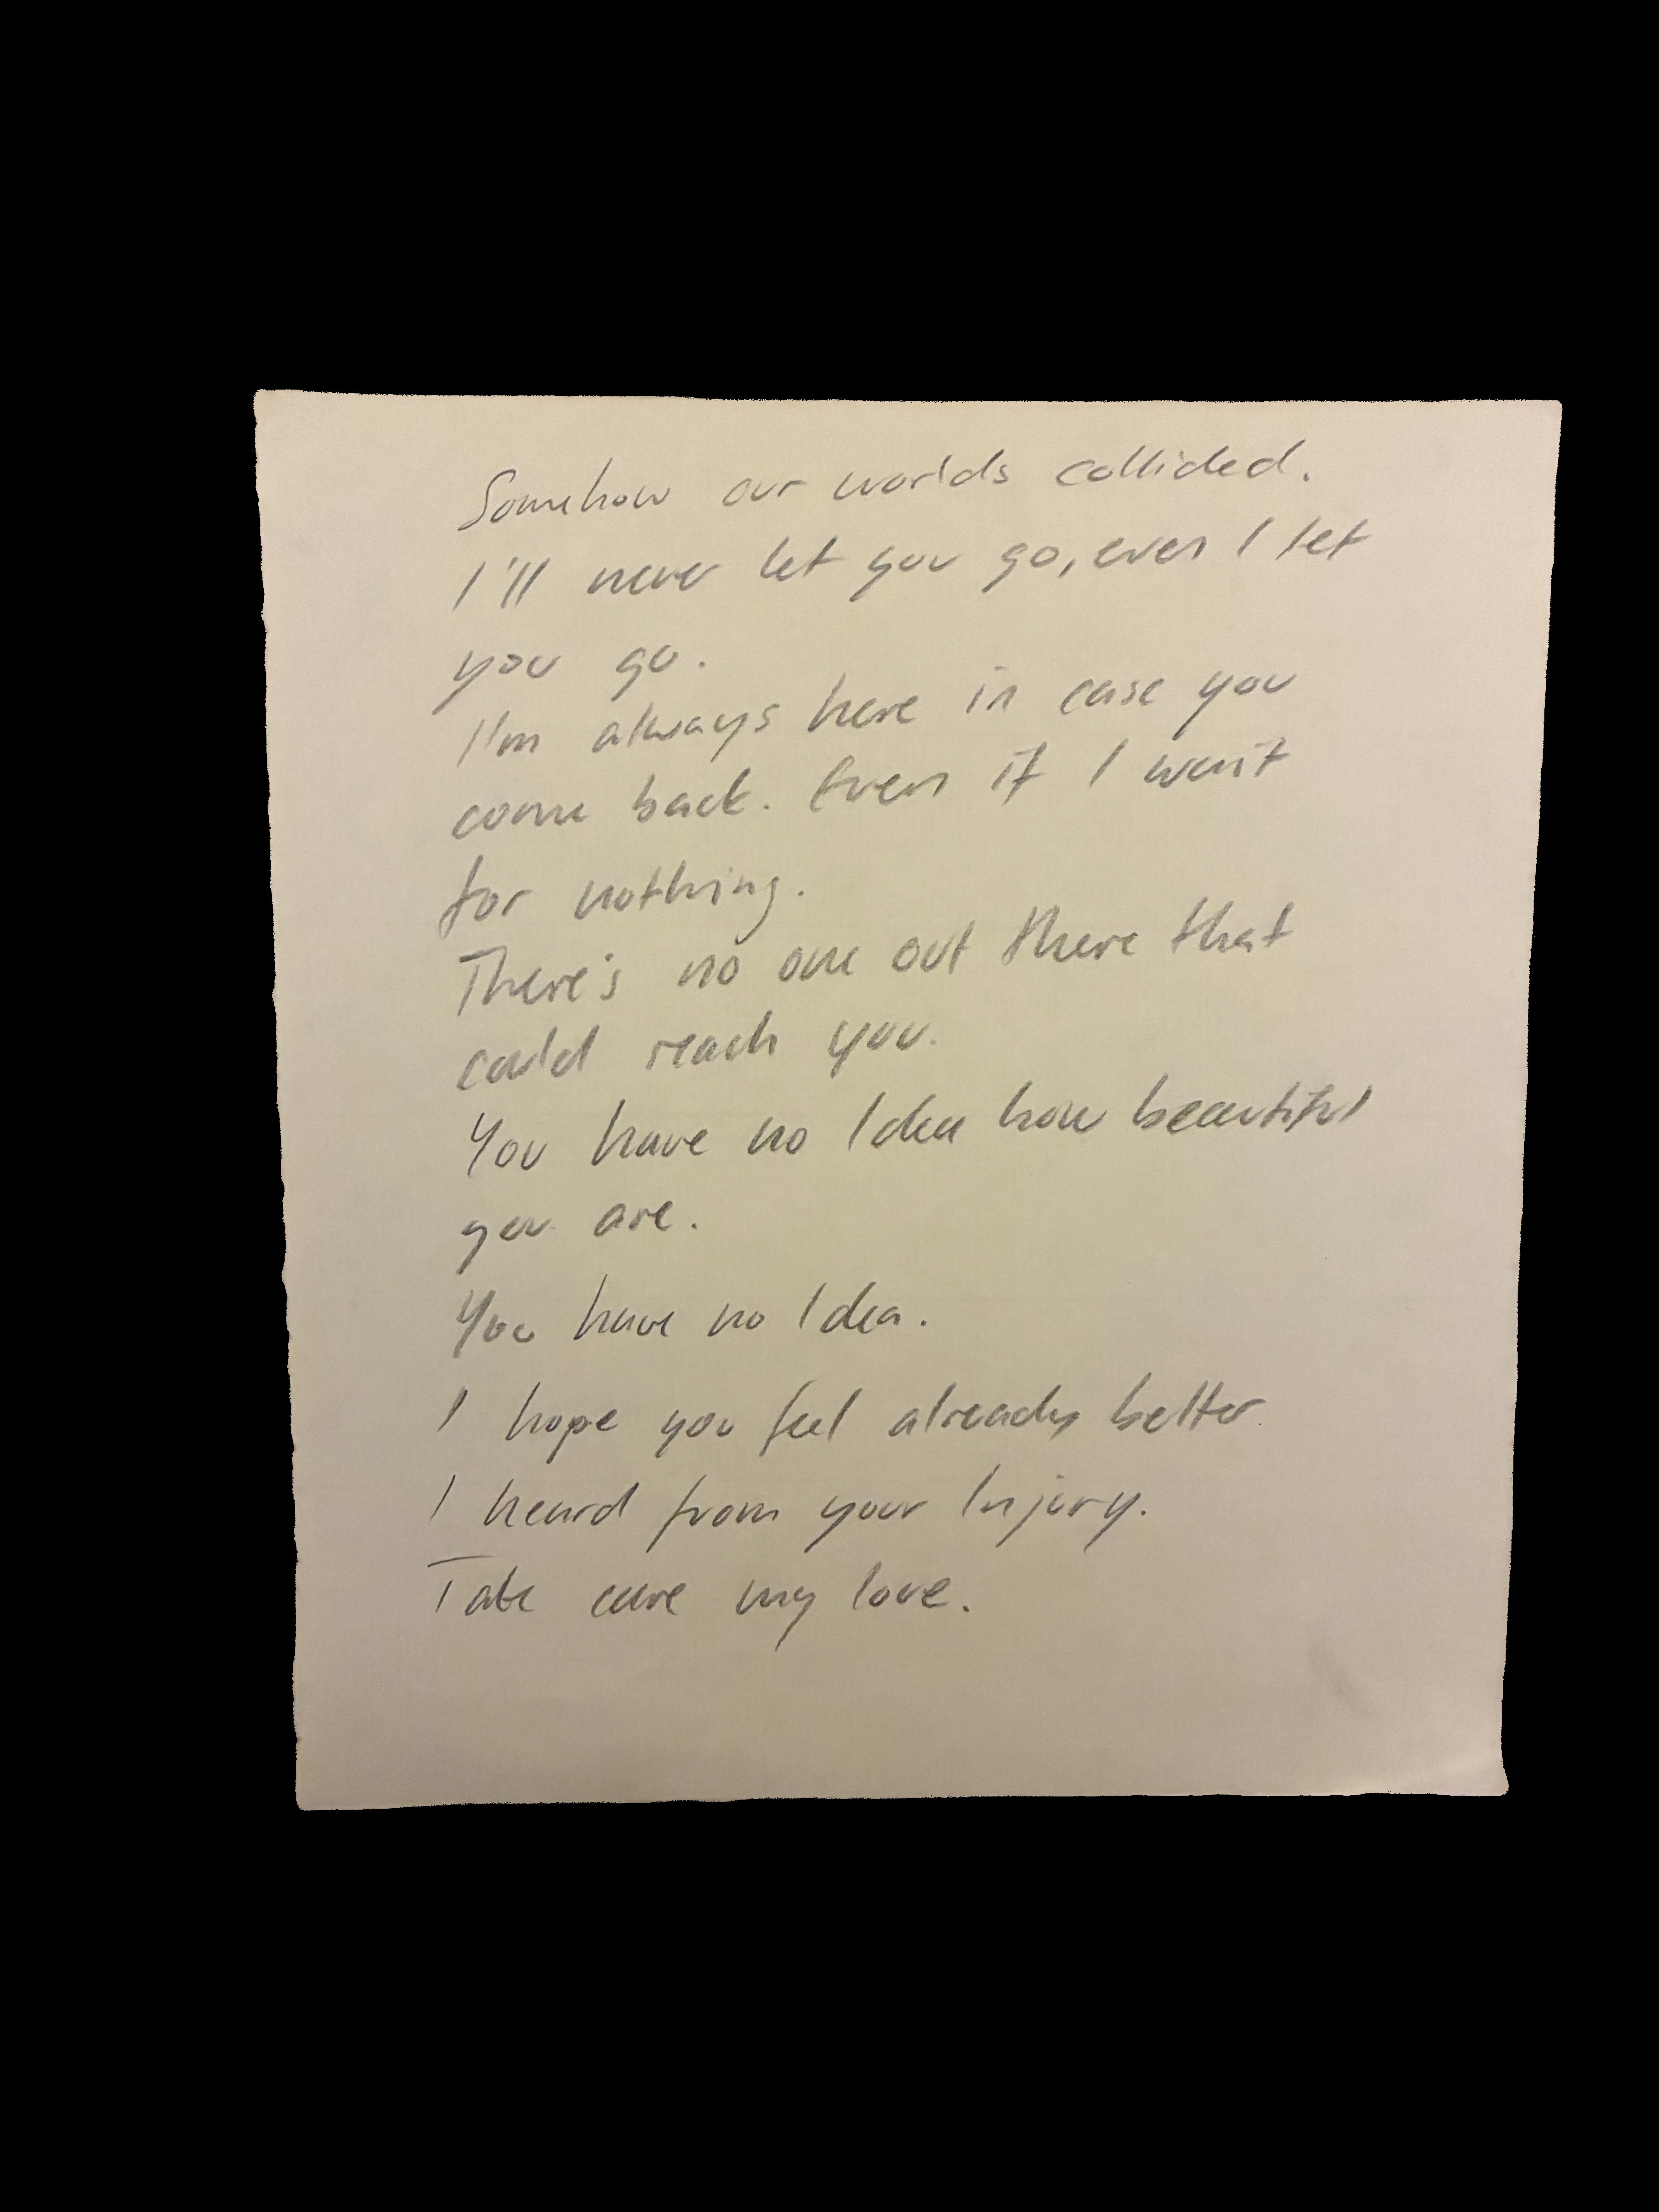 Somehow our worlds collided.
I'll never let you go, even I let
you go.
I'm always here in case you
come back. Even if I wait
for nothing.
There's no one out there that
could reach you.
You have no Idea how beautiful
you are.
You have no Idea.
I hope you feel already better.
I heard from your Injury.
Take care my love.